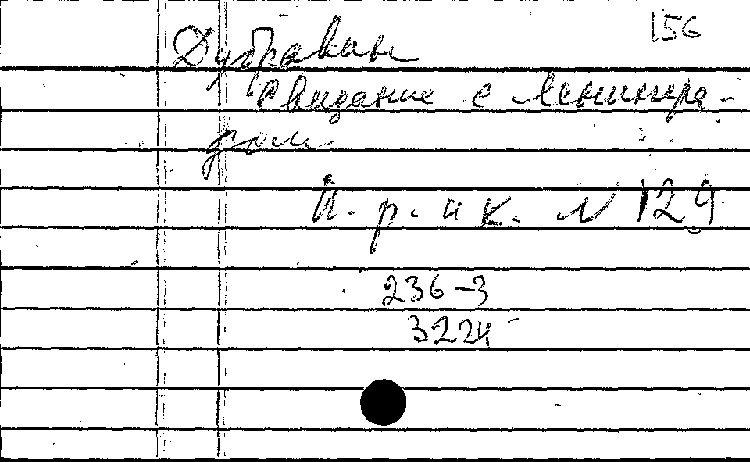 156
Дубравин
Свидание с Ленингра-
дом
П. р. и к. N 129
236-3
3224